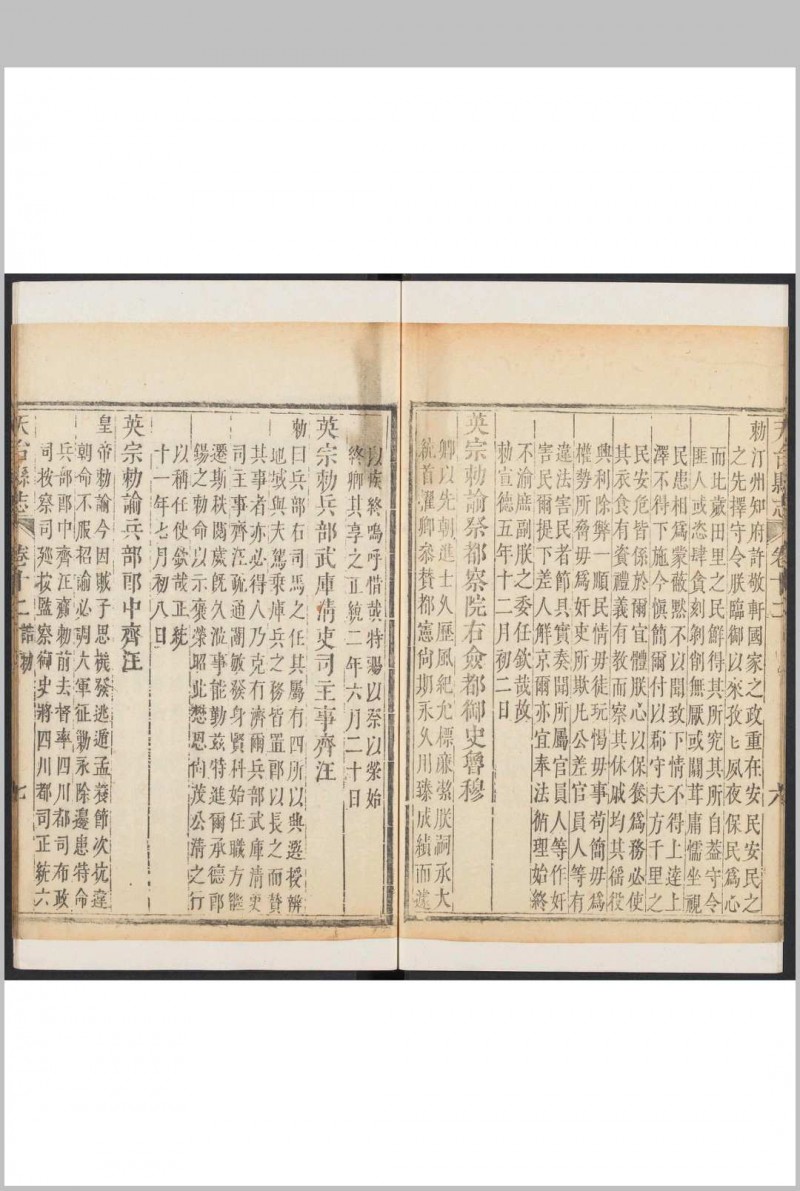 天台縣志 卷十二 六
勅汀州知府許敬軒國家之政重在安民安民之
之先擇守令朕臨御以來孜匕夙夜保民爲心
而比歲田里之民鮮得其所究其所自蓋守令
匪人或恣肆貪刻剝削無厭或闒茸庸懦坐視
民患相爲蒙蔽黙不以聞致下情不得上達上
澤不得下施今愼簡爾付以郡守夫方千里之
民安危皆係於爾宜體朕心以保養爲務必使
其衣食有資禮義有教而察其休戚均其徭役
興利除弊一順民情毋徒玩愒毋事苟簡毋爲
權勢所脅毋爲奸吏所欺凡公差官員人等有
違法害民者節具實奏聞所屬官員人等作奸
害民爾提下差人解京爾亦宜奉法循理始終
不渝庶副朕之委任欽哉故
勅宣德五年十二月初二日
英宗勅諭祭都察院右僉都御史魯穆
卿以先朝進士久歷風紀允標廉潔朕嗣承大
統首擢卿參賛都憲尙期永久用臻成績而遽
以疾終嗚呼惜哉特賜以祭以榮始
終卿其享之正統二年六月二十日
英宗勅兵部武庫清吏司主事齊汪
勅曰兵部右司馬之任其屬有四所以典選授辨
地域與夫駕乘庫兵之務皆置郎以長之而賛
其事者亦必得人乃克有濟爾兵部武庫清吏
司主事齊汪疏通闓敏發身賢科始任職方能
遷斯秩閱歲旣久涖事能勤兹特進爾承德郎
錫之勅命以示褒榮昭此懋恩尙茂公淸之行
以稱任使欽哉正統
十一年七月初八日
英宗勅諭兵部郎中齊汪
皇帝勅諭今因賊子思機發逃遁孟養節次抗違
朝命不服招諭必調大軍征勦永除邊患特命
兵部郎中齊汪齎勅前去督率四川都司布政
司按察司廵按監察御史將四川都司正統六
天台縣志 卷十二 誥勅 七